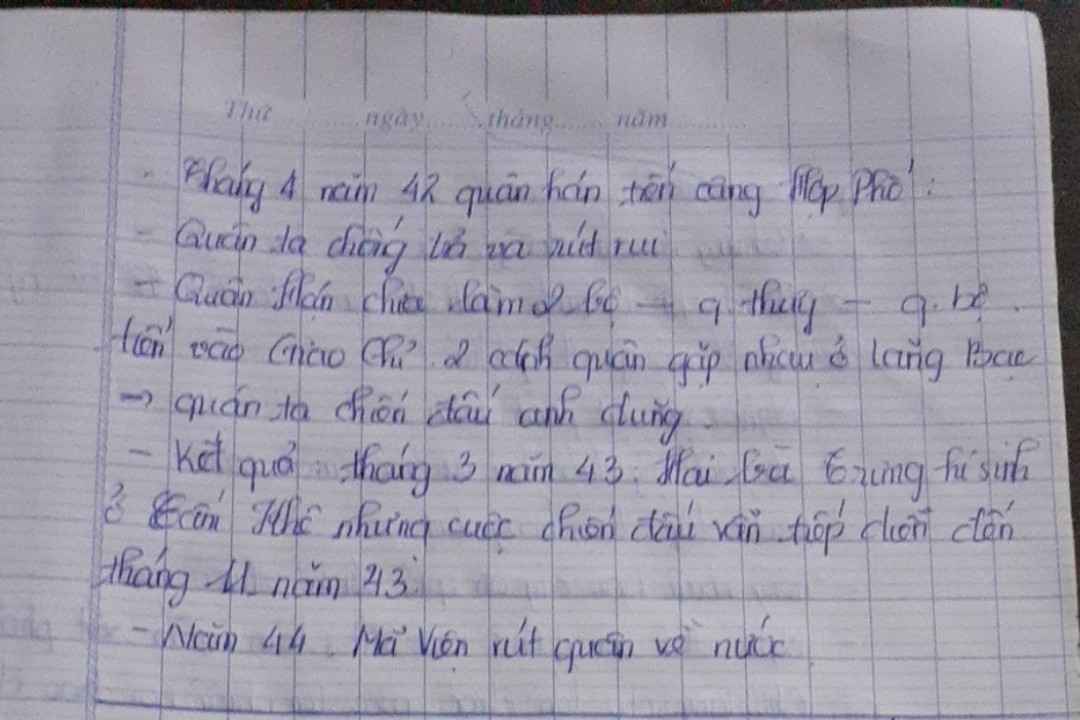 Thứ ngày tháng năm
- Tháng 4 năm 42 quân hán tiến công Hợp Phố:
- Quân ta chống trả và rút rui
- Quân Hán chia làm 2 bộ - q thuỷ - q. bộ.
tiến vào Giao Chỉ. 2 cánh quân gặp nhau ở Lãng Bạc
→ quân ta chiến đấu anh dũng
- Kết quả tháng 3 năm 43. Hai Bà Trưng hi sinh
ở Cấm Khê nhưng cuộc chiến đấu vẫn tiếp diễn đến
tháng 11 năm 43.
- Năm 44. Mã Viện rút quân về nước